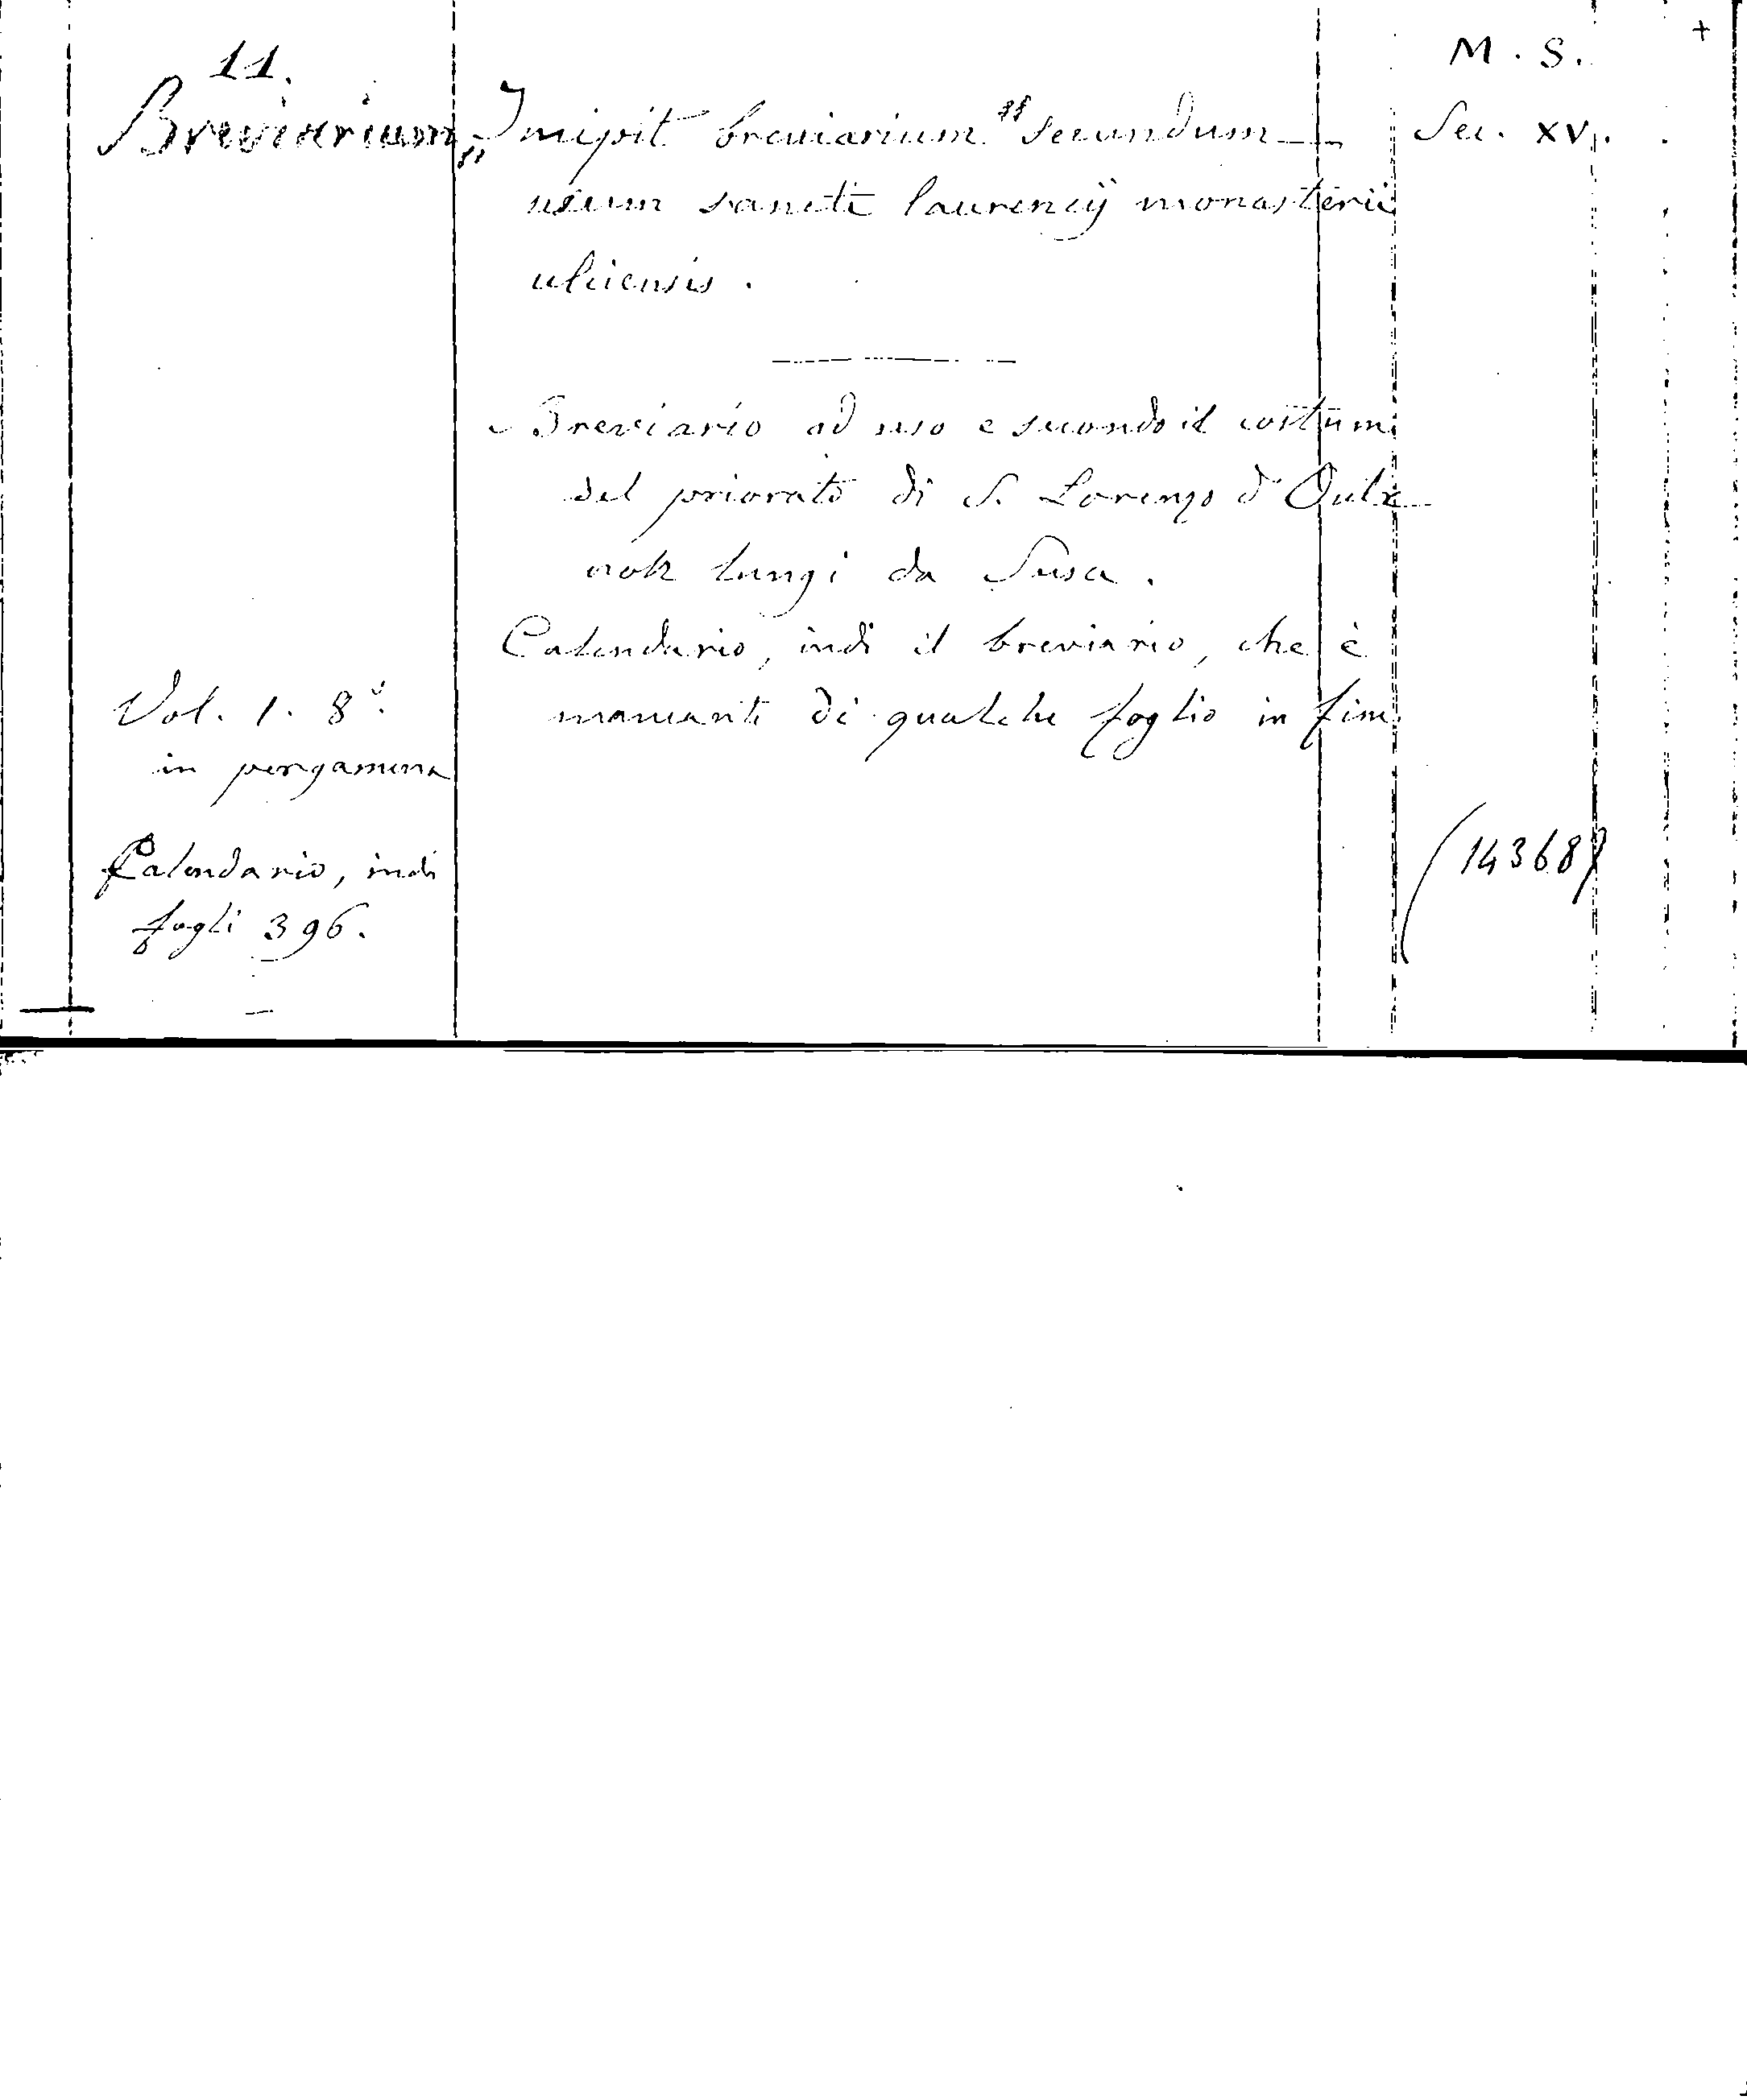 11.
M. S. +
Breviarium „Incipit breviarium" secundum Sec. XV.
usum sancti laurencij monasterii
ulciensis.
Breviario ad uso e secondo il costume
del priorato di S. Lorenzo d'Oulx
non lungi da Susa.
Calendario, indi il breviario, che è
mancante di qualche foglio in fine
Vol. 1. 8°.
in pergamena
Calendario, indi
fogli 396.
(14368)